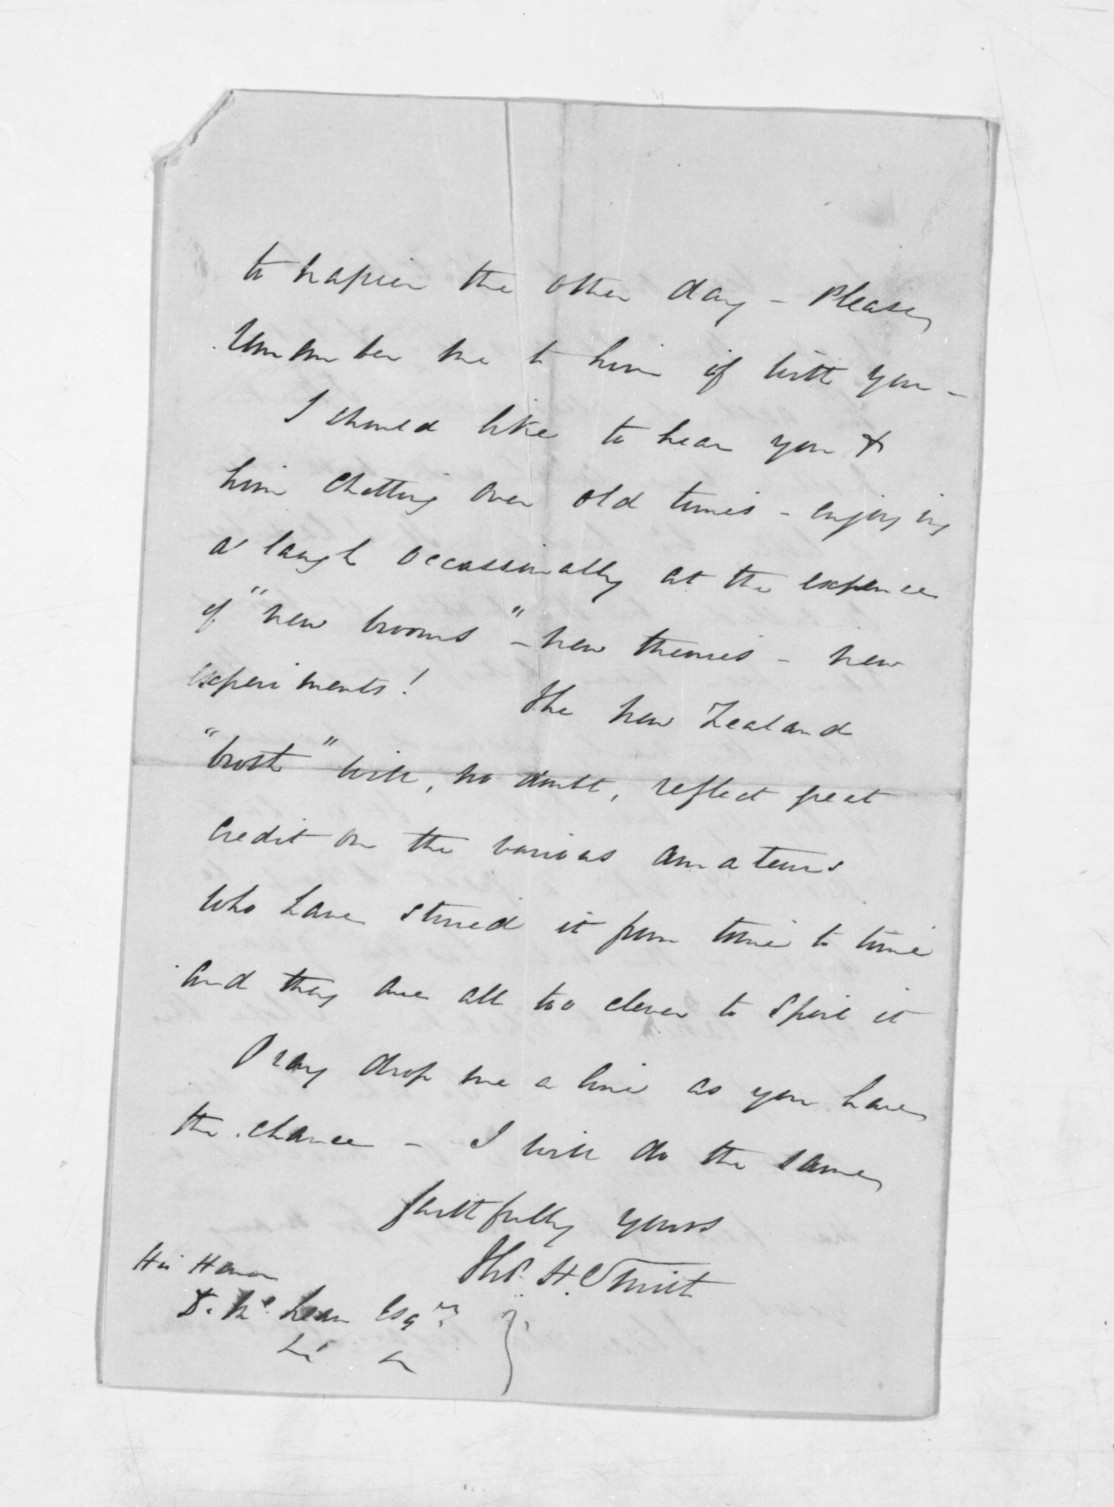 to Napier the other day - Please
remember me to him if with you -
I should like to hear you &
him chatting over old times - enjoying
a laugh occassionally at the expence
of "new brooms" - new theories - new
experiments! The New Zealand
"broth" will, no doubt, reflect great
credit on the various amateurs
who have stirred it from time to time
and they are all too clever to spoil it
Pray drop me a line as you have
the chance - I will do the same
faithfully yours
Thos. H. Smith
His Honor
D. McLean Esqre.